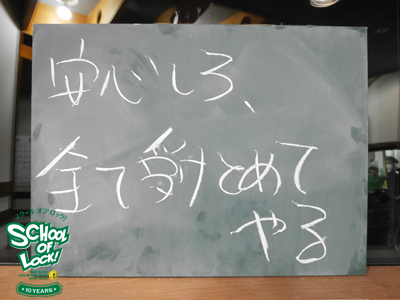 安心しろ、
全て受けとめて
やる
スクール オブ ロック!
SCHOOL
OF
LOCK!
10 YEARS